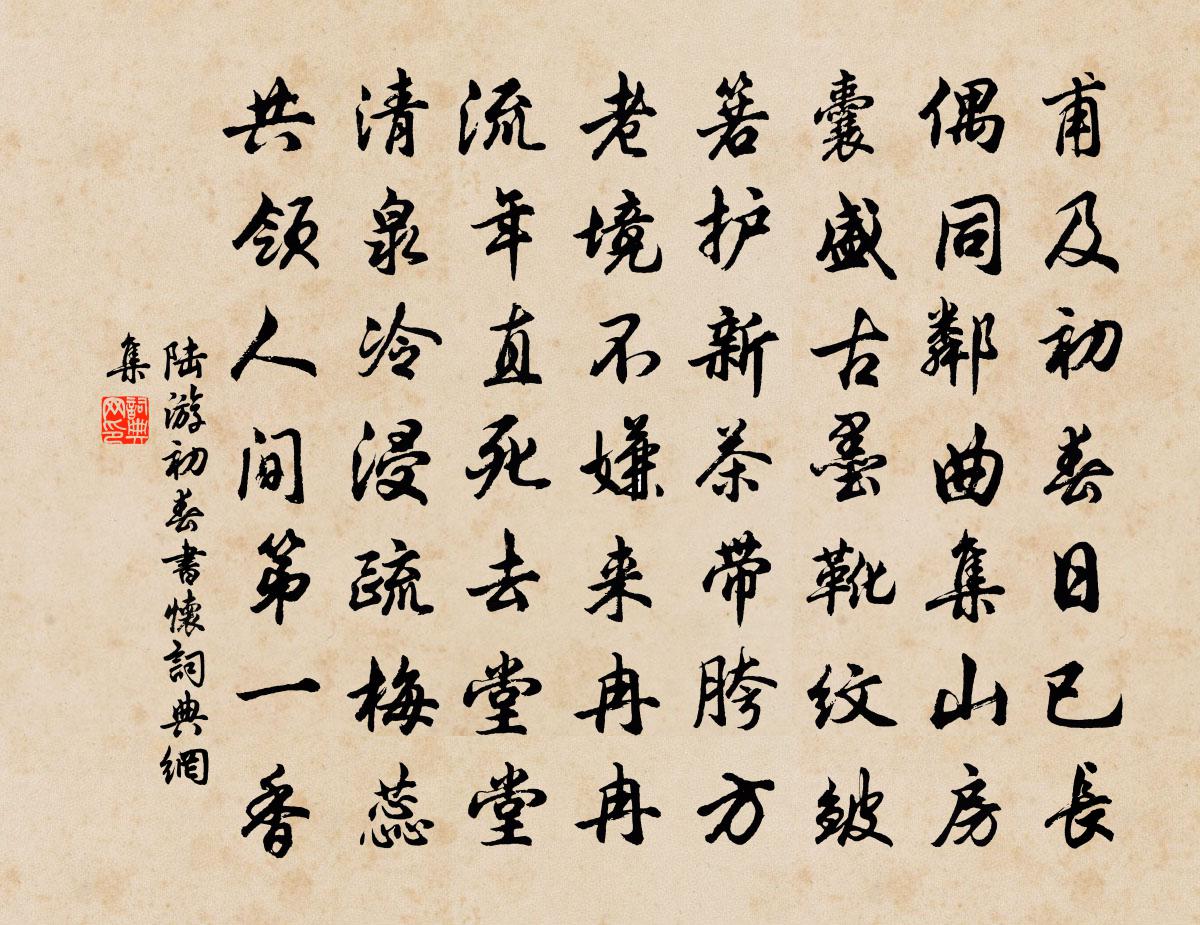 甫及初春日已长
偶同鄰曲集山房
囊盛古墨靴纹皱
箬护新茶带胯方
老境不嫌来冉冉
流年直死去堂堂
清泉冷浸疏梅蕊
共领人间第一香
陆游初春書懷詞典網
集
詞典
网印